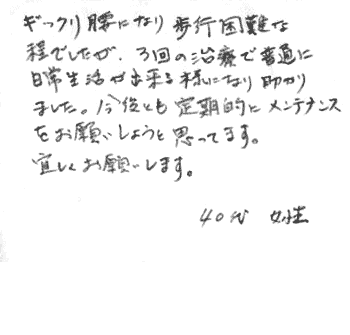 ギックリ腰になり歩行困難な
程でしたが、3回の治療で普通に
日常生活が出来る様になり助かり
ました。今後とも定期的にメンテナンス
をお願いしようと思ってます。
宜しくお願いします。
40代 女性